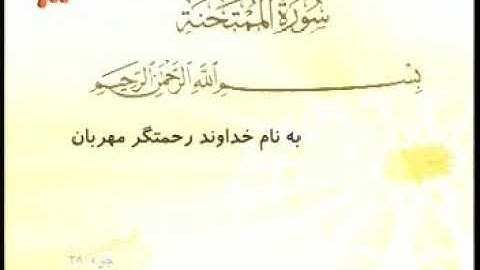 سُورَةُ الْمُمْتَحَنَةِ
بِسْمِ اللَّهِ الرَّحْمَٰنِ الرَّحِيمِ
به نام خداوند رحمتگر مهربان
جزء ۲۸